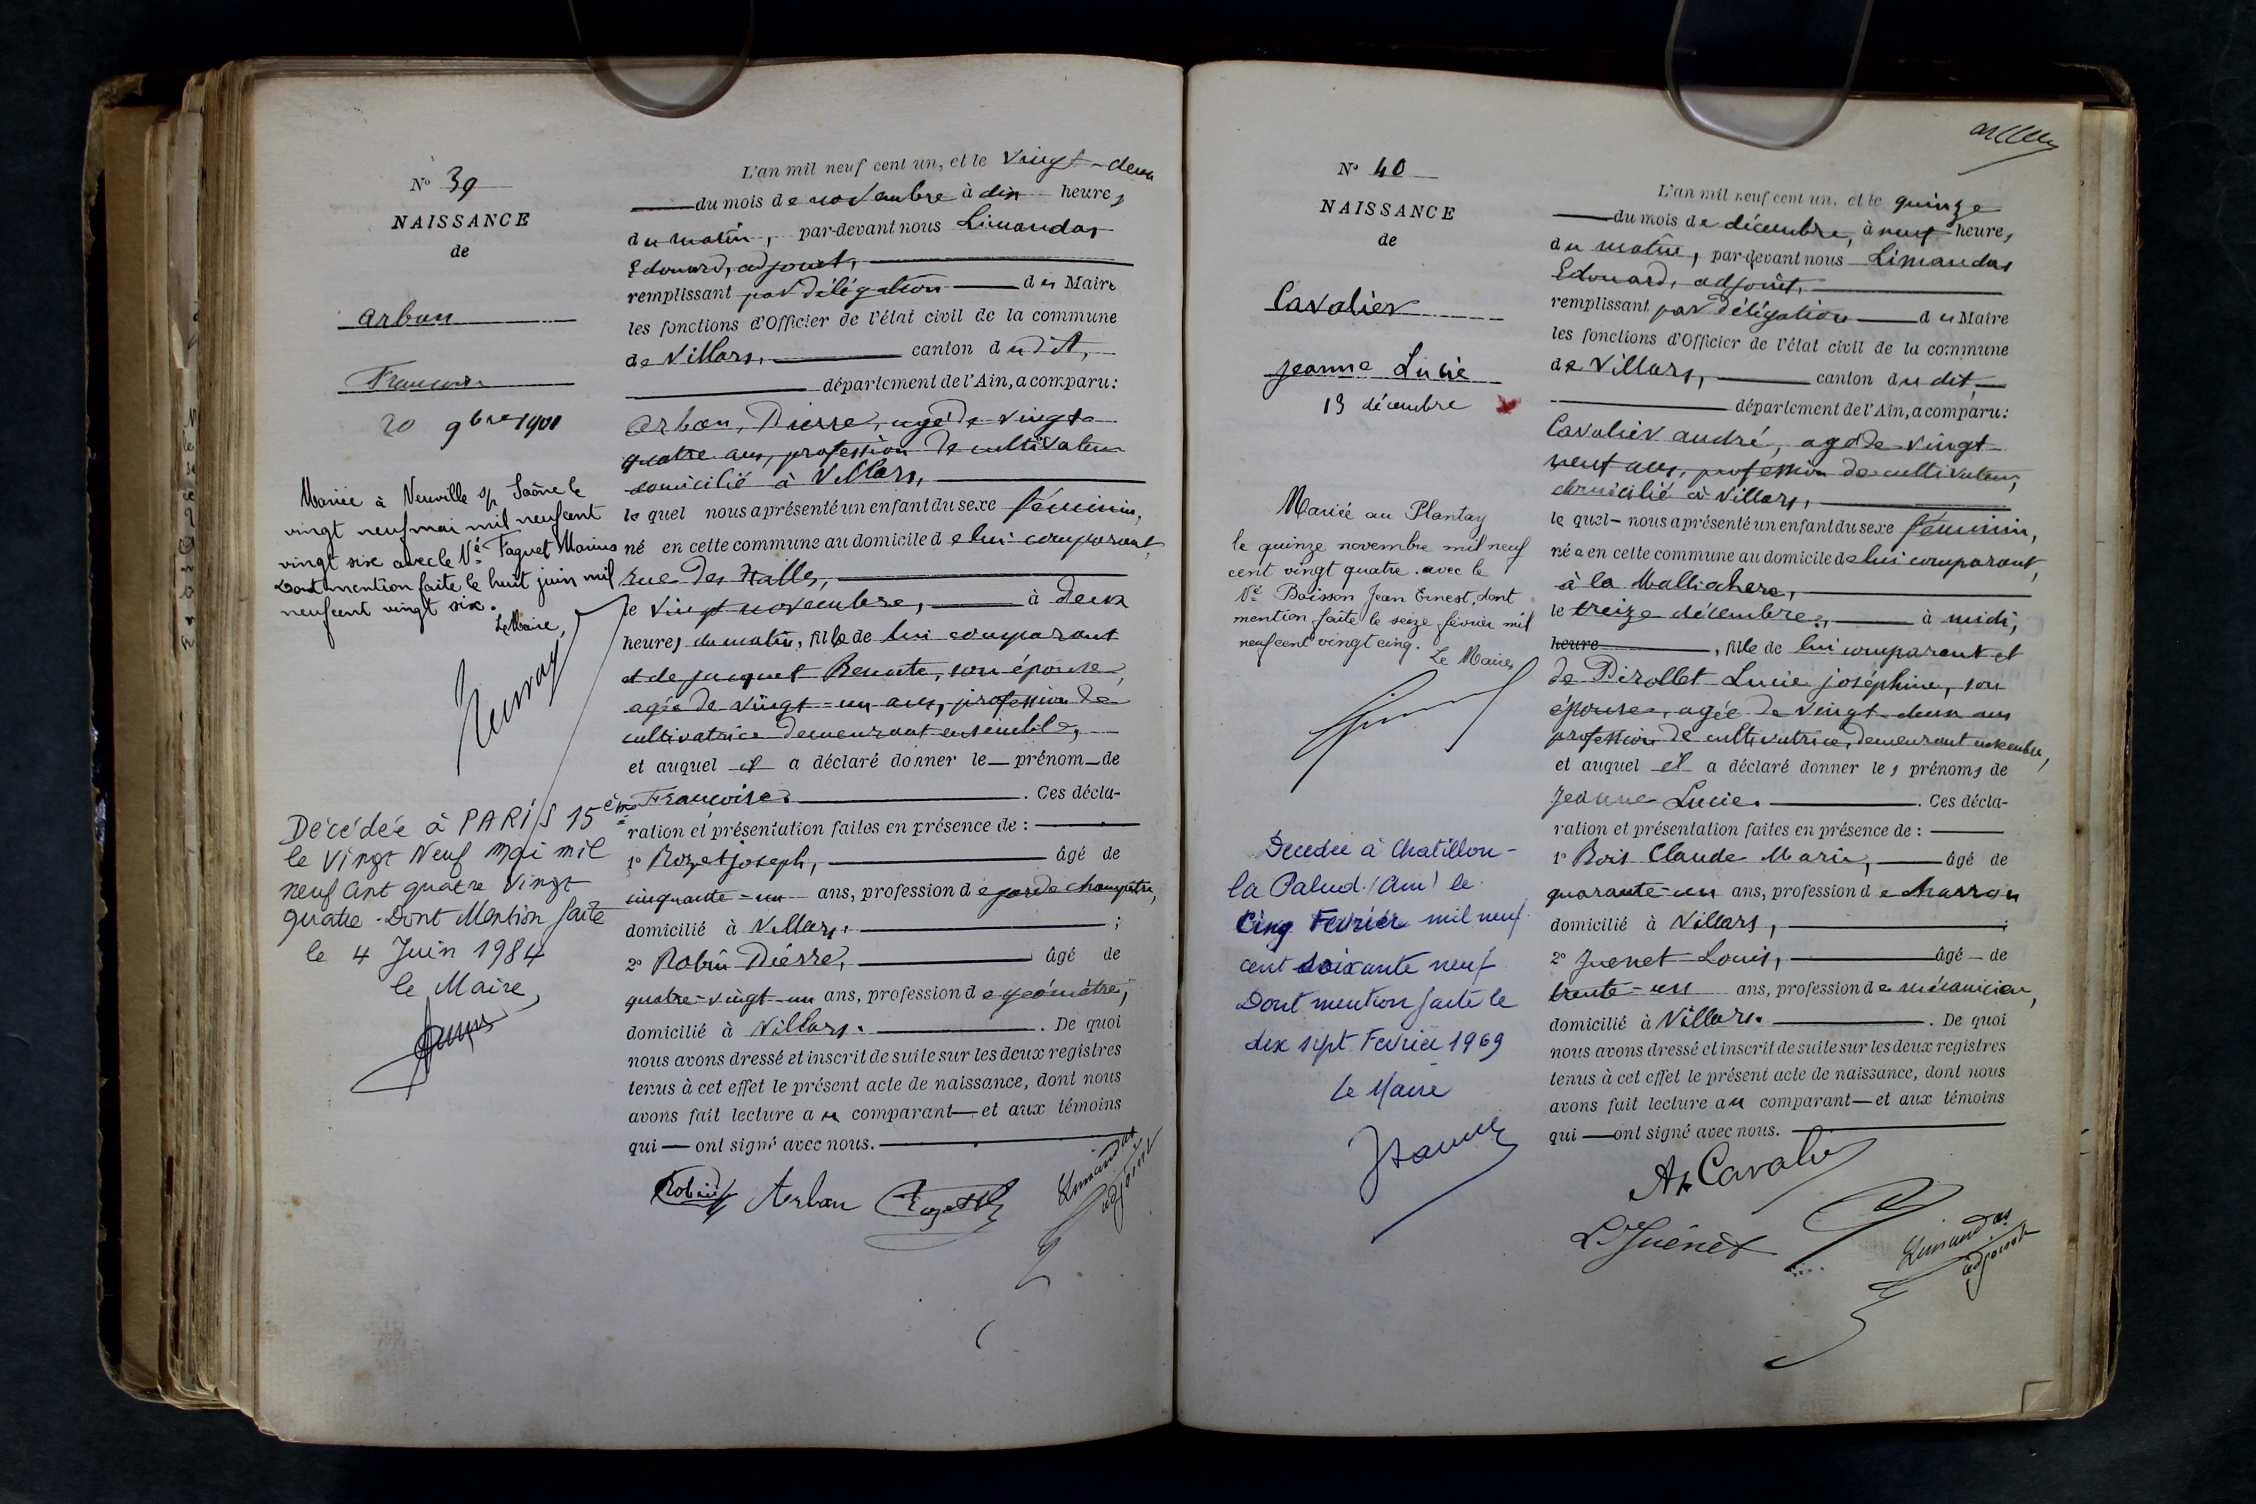 N° 39
NAISSANCE
de
Arban
Françoise
20 9bre 1901
Mariée à Neuville s/ Saône le
vingt neuf mai mil neuf cent
vingt six avec le Vé Faguet Marius
Dont mention faite le huit juin mil
neuf cent vingt six.
Le Maire,
Décédée à PARIS 15ème
le Vingt Neuf mai mil
neuf cent quatre vingt
quatre - Dont Mention faite
le 4 Juin 1984
le Maire,
L'an mil neuf cent un, et le vingt-deux
du mois de novembre à dix heures
du matin, par-devant nous Limandas
Edouard, adjoint,
remplissant par délégation du Maire
les fonctions d'Officier de l'état civil de la commune
de Villars, canton dudit,
département de l'Ain, a comparu:
Arban, Pierre, agé de vingt-
quatre ans, profession de cultivateur
domicilié à Villars,
le quel nous a présenté un enfant du sexe féminin,
né en cette commune au domicile de lui comparant,
rue des Halles,
le vingt novembre, à deux
heures du matin, fille de lui comparant
et de Jacquet Benoite, son épouse,
agée de vingt-un ans, profession de
cultivatrice demeurant ensemble,
et auquel il a déclaré donner le prénom de
Françoise. Ces décla-
ration et présentation faites en présence de :
1° Rozet joseph, âgé de
cinquante-un ans, profession de garde champêtre,
domicilié à Villars. ;
2° Robin Pierre, âgé de
quatre-vingt-un ans, profession de géomètre,
domicilié à Villars. . De quoi
nous avons dressé et inscrit de suite sur les deux registres
tenus à cet effet le présent acte de naissance, dont nous
avons fait lecture au comparant et aux témoins
qui ont signé avec nous.
Robin Arban Rozet
Limandas
adjoint
N° 40
NAISSANCE
de
Cavalier
Jeanne Lucie
13 décembre
Mariée au Plantay
le quinze novembre mil neuf
cent vingt quatre. avec le
Vé Boisson Jean Ernest, dont
mention faite le seize février mil
neuf cent vingt cinq.
Le Maire,
Decedee à Chatillon-
la Palud (Ain) le
Cinq Fevrier mil neuf
cent soixante neuf
Dont mention faite le
dix sept Fevrier 1969
Le Maire
L'an mil neuf cent un, et le quinze
du mois de décembre, à neuf heures
du matin, par-devant nous Limandas
Edouard, adjoint,
remplissant par délégation du Maire
les fonctions d'Officier de l'état civil de la commune
de Villars, canton du dit,
département de l'Ain, a comparu:
Cavalier andré, agé de vingt
neuf ans, profession de cultivateur,
domicilié à Villars,
le quel nous a présenté un enfant du sexe féminin,
née en cette commune au domicile de lui comparant,
le treize décembre, à midi,
heure , fille de lui comparant et
de Pirollet Lucie joséphine, son
épouse, agée de vingt-deux ans
profession de cultivatrice, demeurant ensemble,
et auquel il a déclaré donner les prénoms de
Jeanne Lucie. Ces décla-
ration et présentation faites en présence de :
1° Bois Claude Marie, âgé de
quarante-un ans, profession de charron
domicilié à Villars, ;
2° Juenet Louis, âgé de
trente-un ans, profession de mécanicien,
domicilié à Villars. . De quoi
nous avons dressé et inscrit de suite sur les deux registres
tenus à cet effet le présent acte de naissance, dont nous
avons fait lecture au comparant et aux témoins
qui ont signé avec nous.
Cavalier
Juenet
Limandas
adjoint